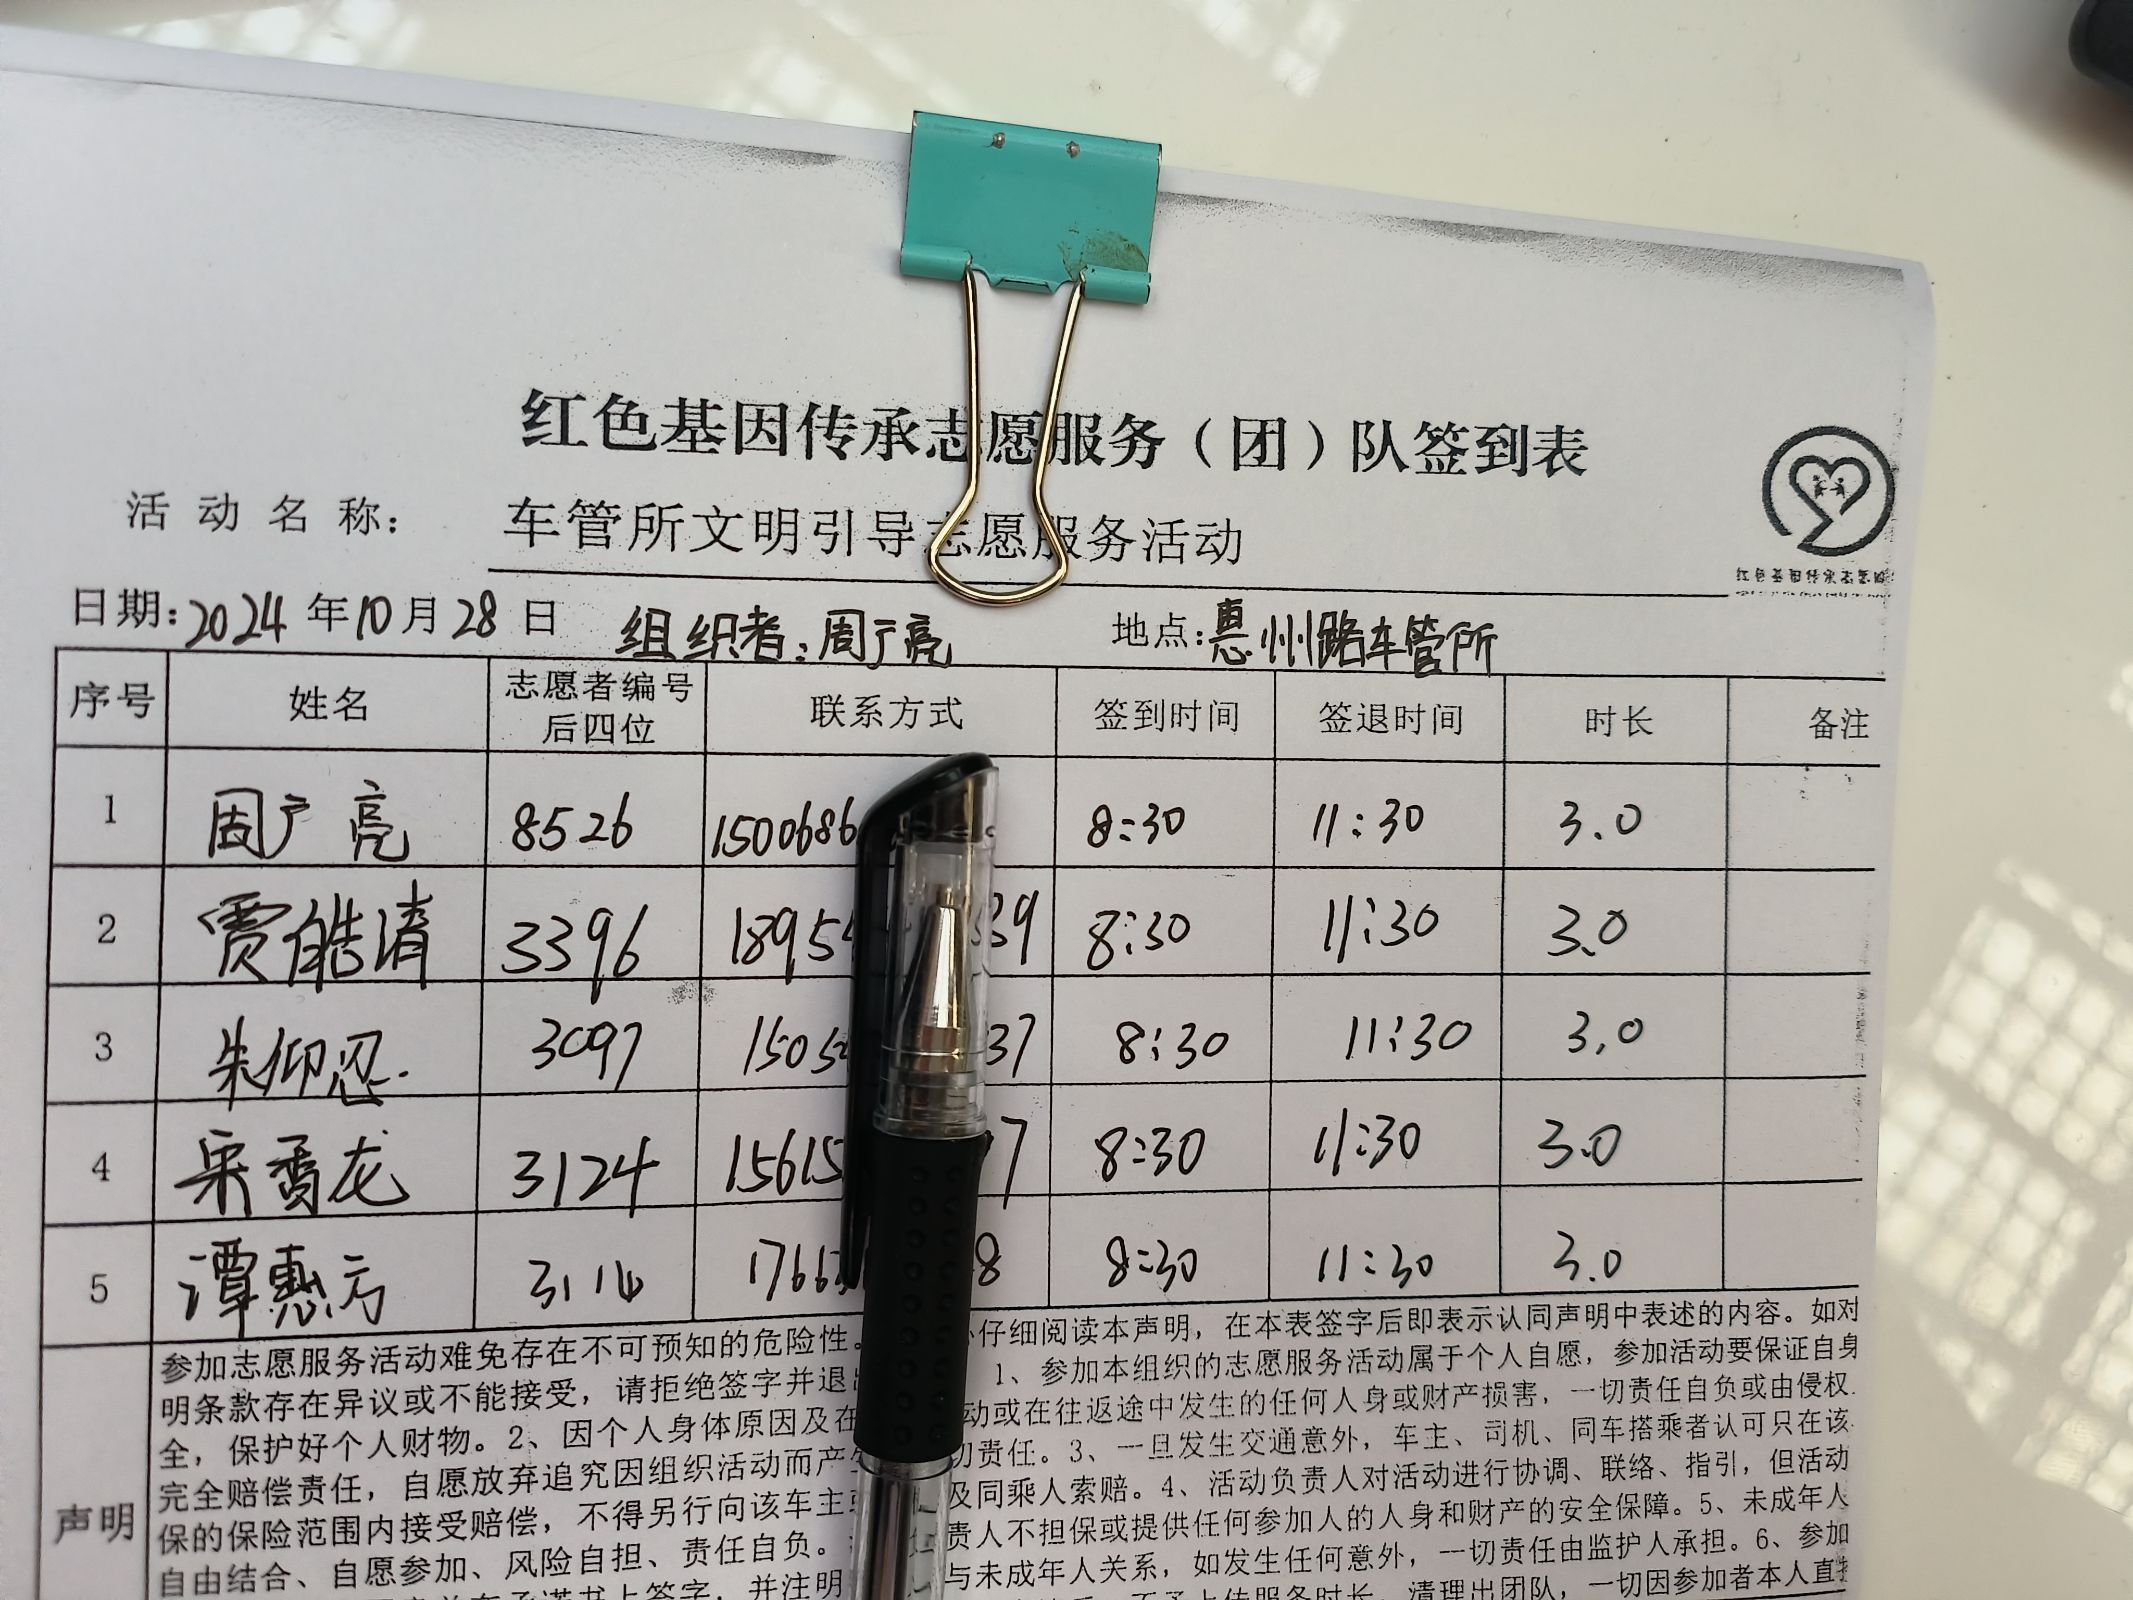 红色基因传承志愿服务（团）队签到表
活动名称： 车管所文明引导志愿服务活动
红色基因传承志愿服
日期：2024年10月28日 组织者：周广亮 地点：惠州路车管所
序号 姓名 志愿者编号后四位 联系方式 签到时间 签退时间 时长 备注
1 周广亮 8526 1500686 8:30 11:30 3.0
2 贾皓清 3396 1895 39 8:30 11:30 3.0
3 朱仰忍 3097 1505 37 8:30 11:30 3.0
4 宋香龙 3124 15615 7 8:30 11:30 3.0
5 谭惠方 3114 1766 8 8:30 11:30 3.0
声明
参加志愿服务活动难免存在不可预知的危险性。 仔细阅读本声明，在本表签字后即表示认同声明中表述的内容。如对
明条款存在异议或不能接受，请拒绝签字并退 1、参加本组织的志愿服务活动属于个人自愿，参加活动要保证自身
全，保护好个人财物。2、因个人身体原因及在 动或在往返途中发生的任何人身或财产损害，一切责任自负或由侵权
完全赔偿责任，自愿放弃追究因组织活动而产 切责任。3、一旦发生交通意外，车主、司机、同车搭乘者认可只在该
保的保险范围内接受赔偿，不得另行向该车主 及同乘人索赔。4、活动负责人对活动进行协调、联络、指引，但活动
自由结合、自愿参加、风险自担、责任自负。 责人不担保或提供任何参加人的人身和财产的安全保障。5、未成年人
签字，并注明 与未成年人关系，如发生任何意外，一切责任由监护人承担。6、参加
上传服务时长，清理出团队，一切因参加者本人直